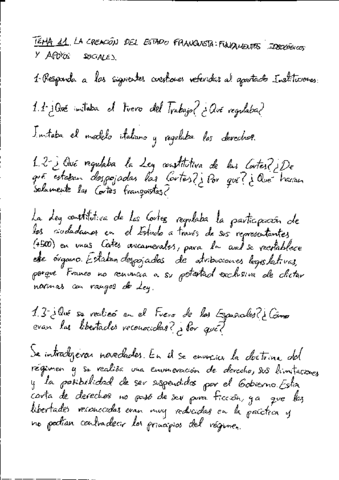 TEMA 11. LA CREACIÓN DEL ESTADO FRANQUISTA: FUNDAMENTOS IDEOLÓGICOS
Y APOYOS SOCIALES.
1- Responda a las siguientes cuestiones referidas al apartado Instituciones.
1.1-¿Qué imitaba el Fuero del Trabajo? ¿Qué regulaba?
Imitaba el modelo italiano y regulaba los derechos.
1.2- ¿Qué regulaba la Ley constitutiva de las Cortes? ¿De
qué estaban despojadas las Cortes? ¿Por qué? ¿Qué hacían
solamente las Cortes franquistas?
La Ley constitutiva de las Cortes regulaba la participación de
los ciudadanos en el Estado a través de sus representantes
(+500) en unas Cortes unicamerales, para la cual se reestablece
este órgano. Estaban despojadas de atribuciones legislativas,
porque Franco no renuncia a su potestad exclusiva de dictar
normas con rangos de Ley.
1.3-¿Qué se realizó en el Fuero de los Españoles? ¿Cómo
eran las libertades reconocidas? ¿Por qué?
Se introdujeron novedades. En él se enuncia la doctrina del
régimen y se realiza una enumeración de derecho, sus limitaciones
y la posibilidad de ser suspendidos por el Gobierno. Esta
carta de derechos no pasó de ser pura ficción, ya que las
libertades reconocidas eran muy reducidas en la práctica y
no podían contradecir los principios del régimen.